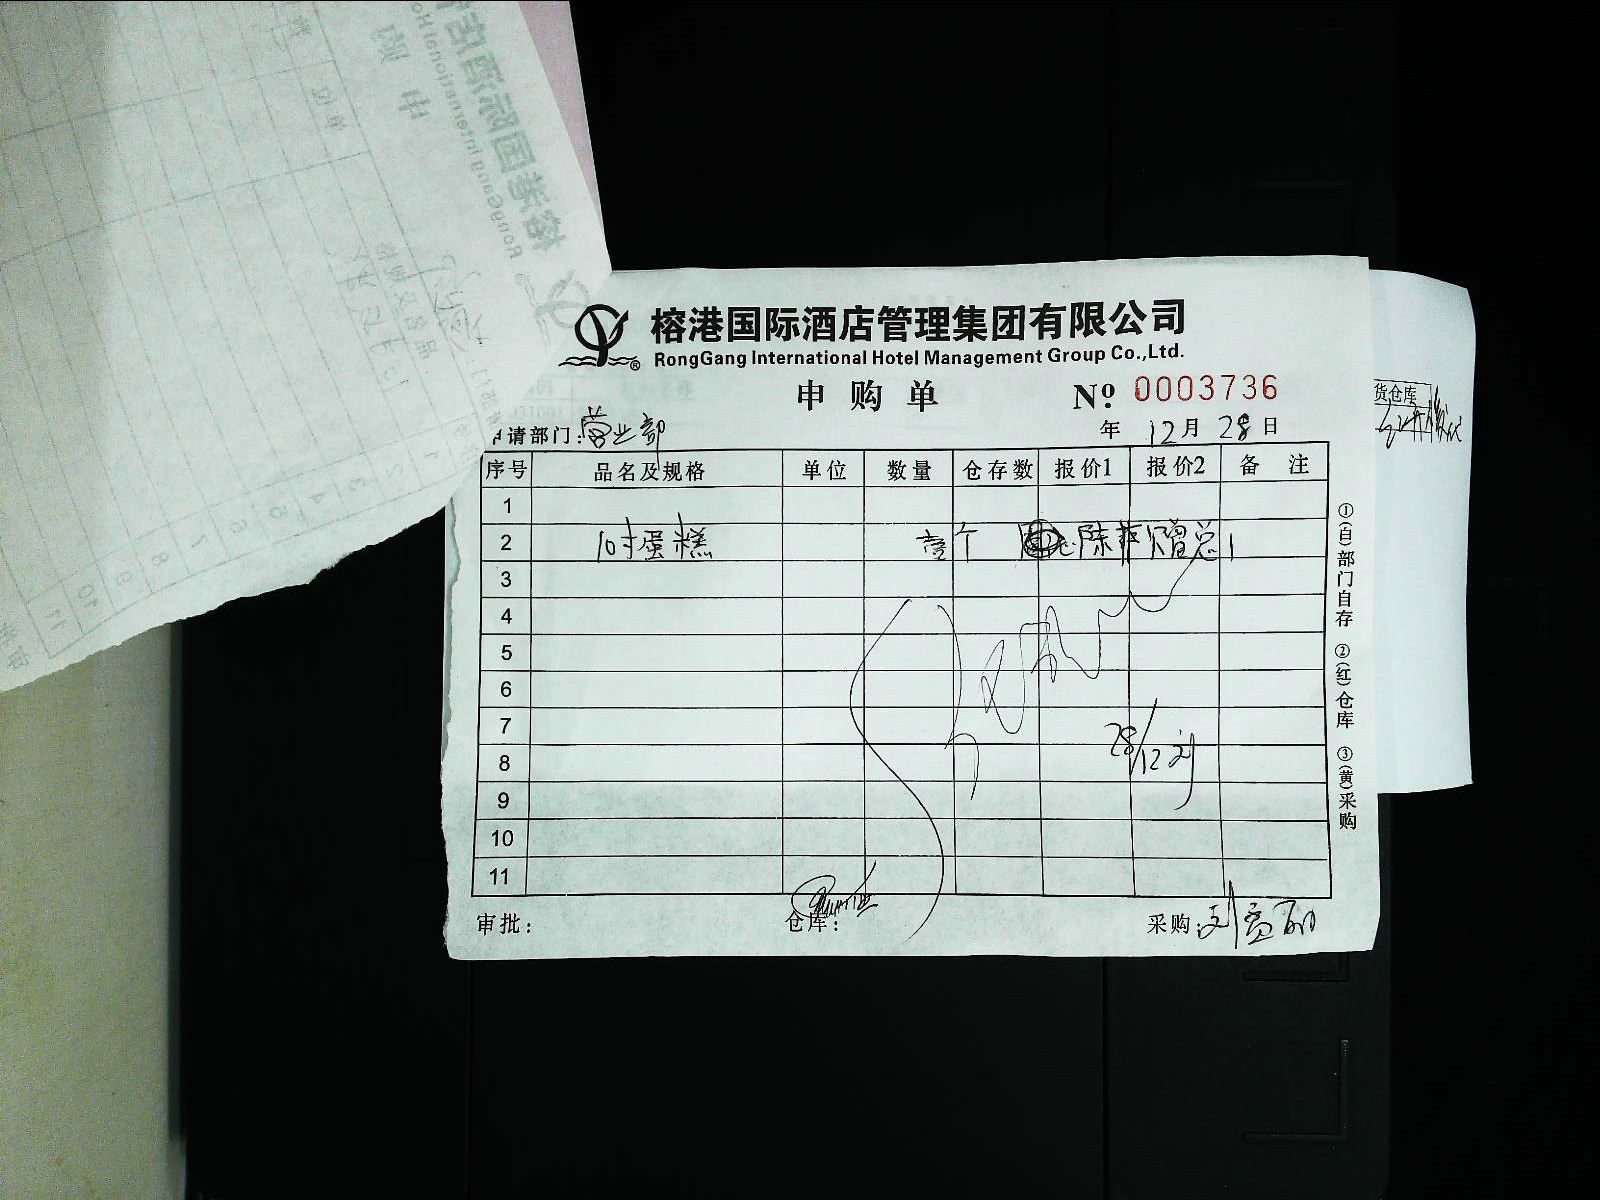 榕港国际酒店管理集团有限公司
RongGang International Hotel Management Group Co.,Ltd.
申购单 Nº 0003736
申请部门：营业部 年 12月 28日
序号 品名及规格 单位 数量 仓存数 报价1 报价2 备注
1
2 10寸蛋糕 壹个 陈 赠总
3
4
5
6
7
28/12
8
9
10
11
审批： 仓库： 采购：刘
①(白)部门自存 ②(红)仓库 ③(黄)采购
货仓库